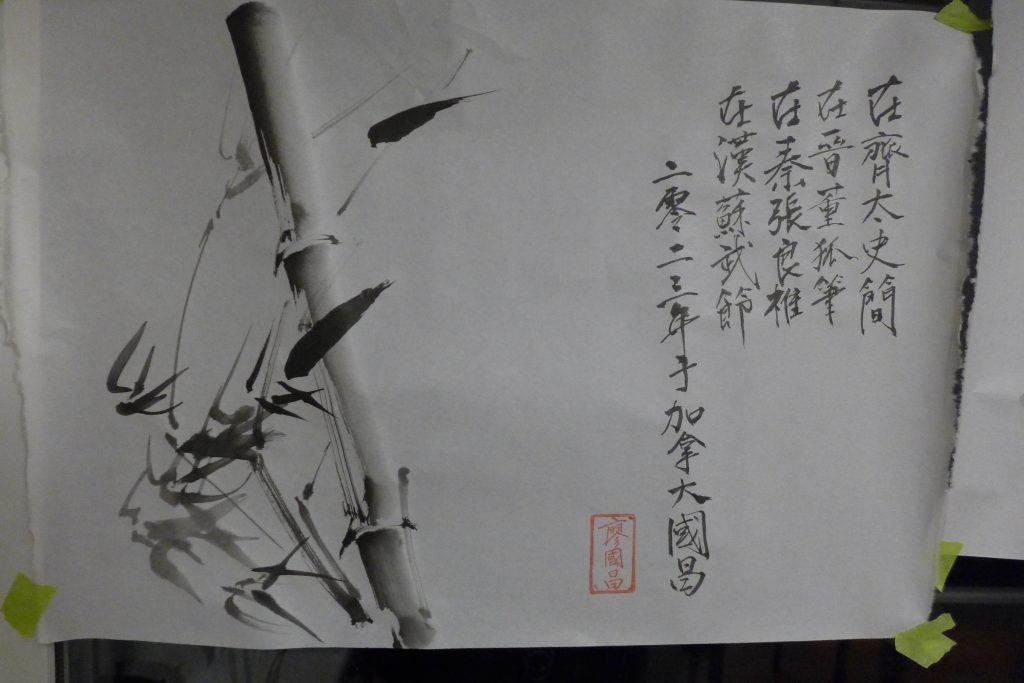 在齊太史簡
在晉董狐筆
在秦張良椎
在漢蘇武節
二零二三年于加拿大國昌
廖國昌